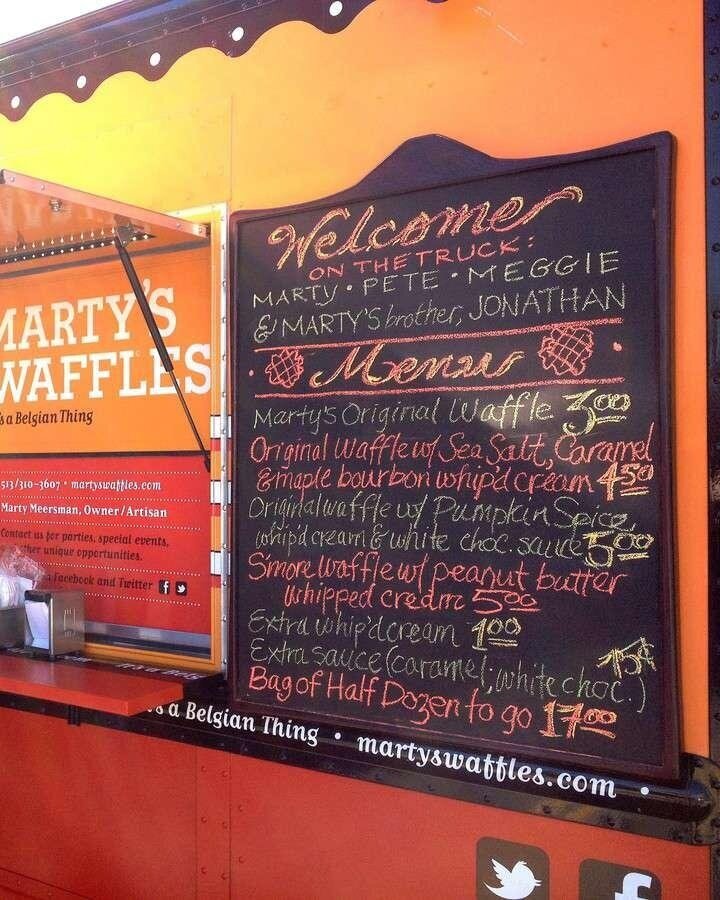 MARTY'S
WAFFLES
s a Belgian Thing
513/310-3607 • martyswaffles.com
Marty Meersman, Owner/Artisan
Contact us for parties, special events,
other unique opportunities.
Facebook and Twitter
Welcome
ON THE TRUCK:
MARTY • PETE • MEGGIE
& MARTY'S brother, JONATHAN
Menu
Marty's Original Waffle 3.00
Original Waffle w/ Sea Salt, Caramel
& maple bourbon whip'd cream 4.50
Original waffle w/ Pumpkin Spice,
whip'd cream & white choc. sauce 5.00
S'more Waffle w/ peanut butter
whipped cream 5.00
Extra whip'd cream 1.00
Extra sauce (caramel; white choc.) .75¢
Bag of Half Dozen to go 17.00
's a Belgian Thing • martyswaffles.com •